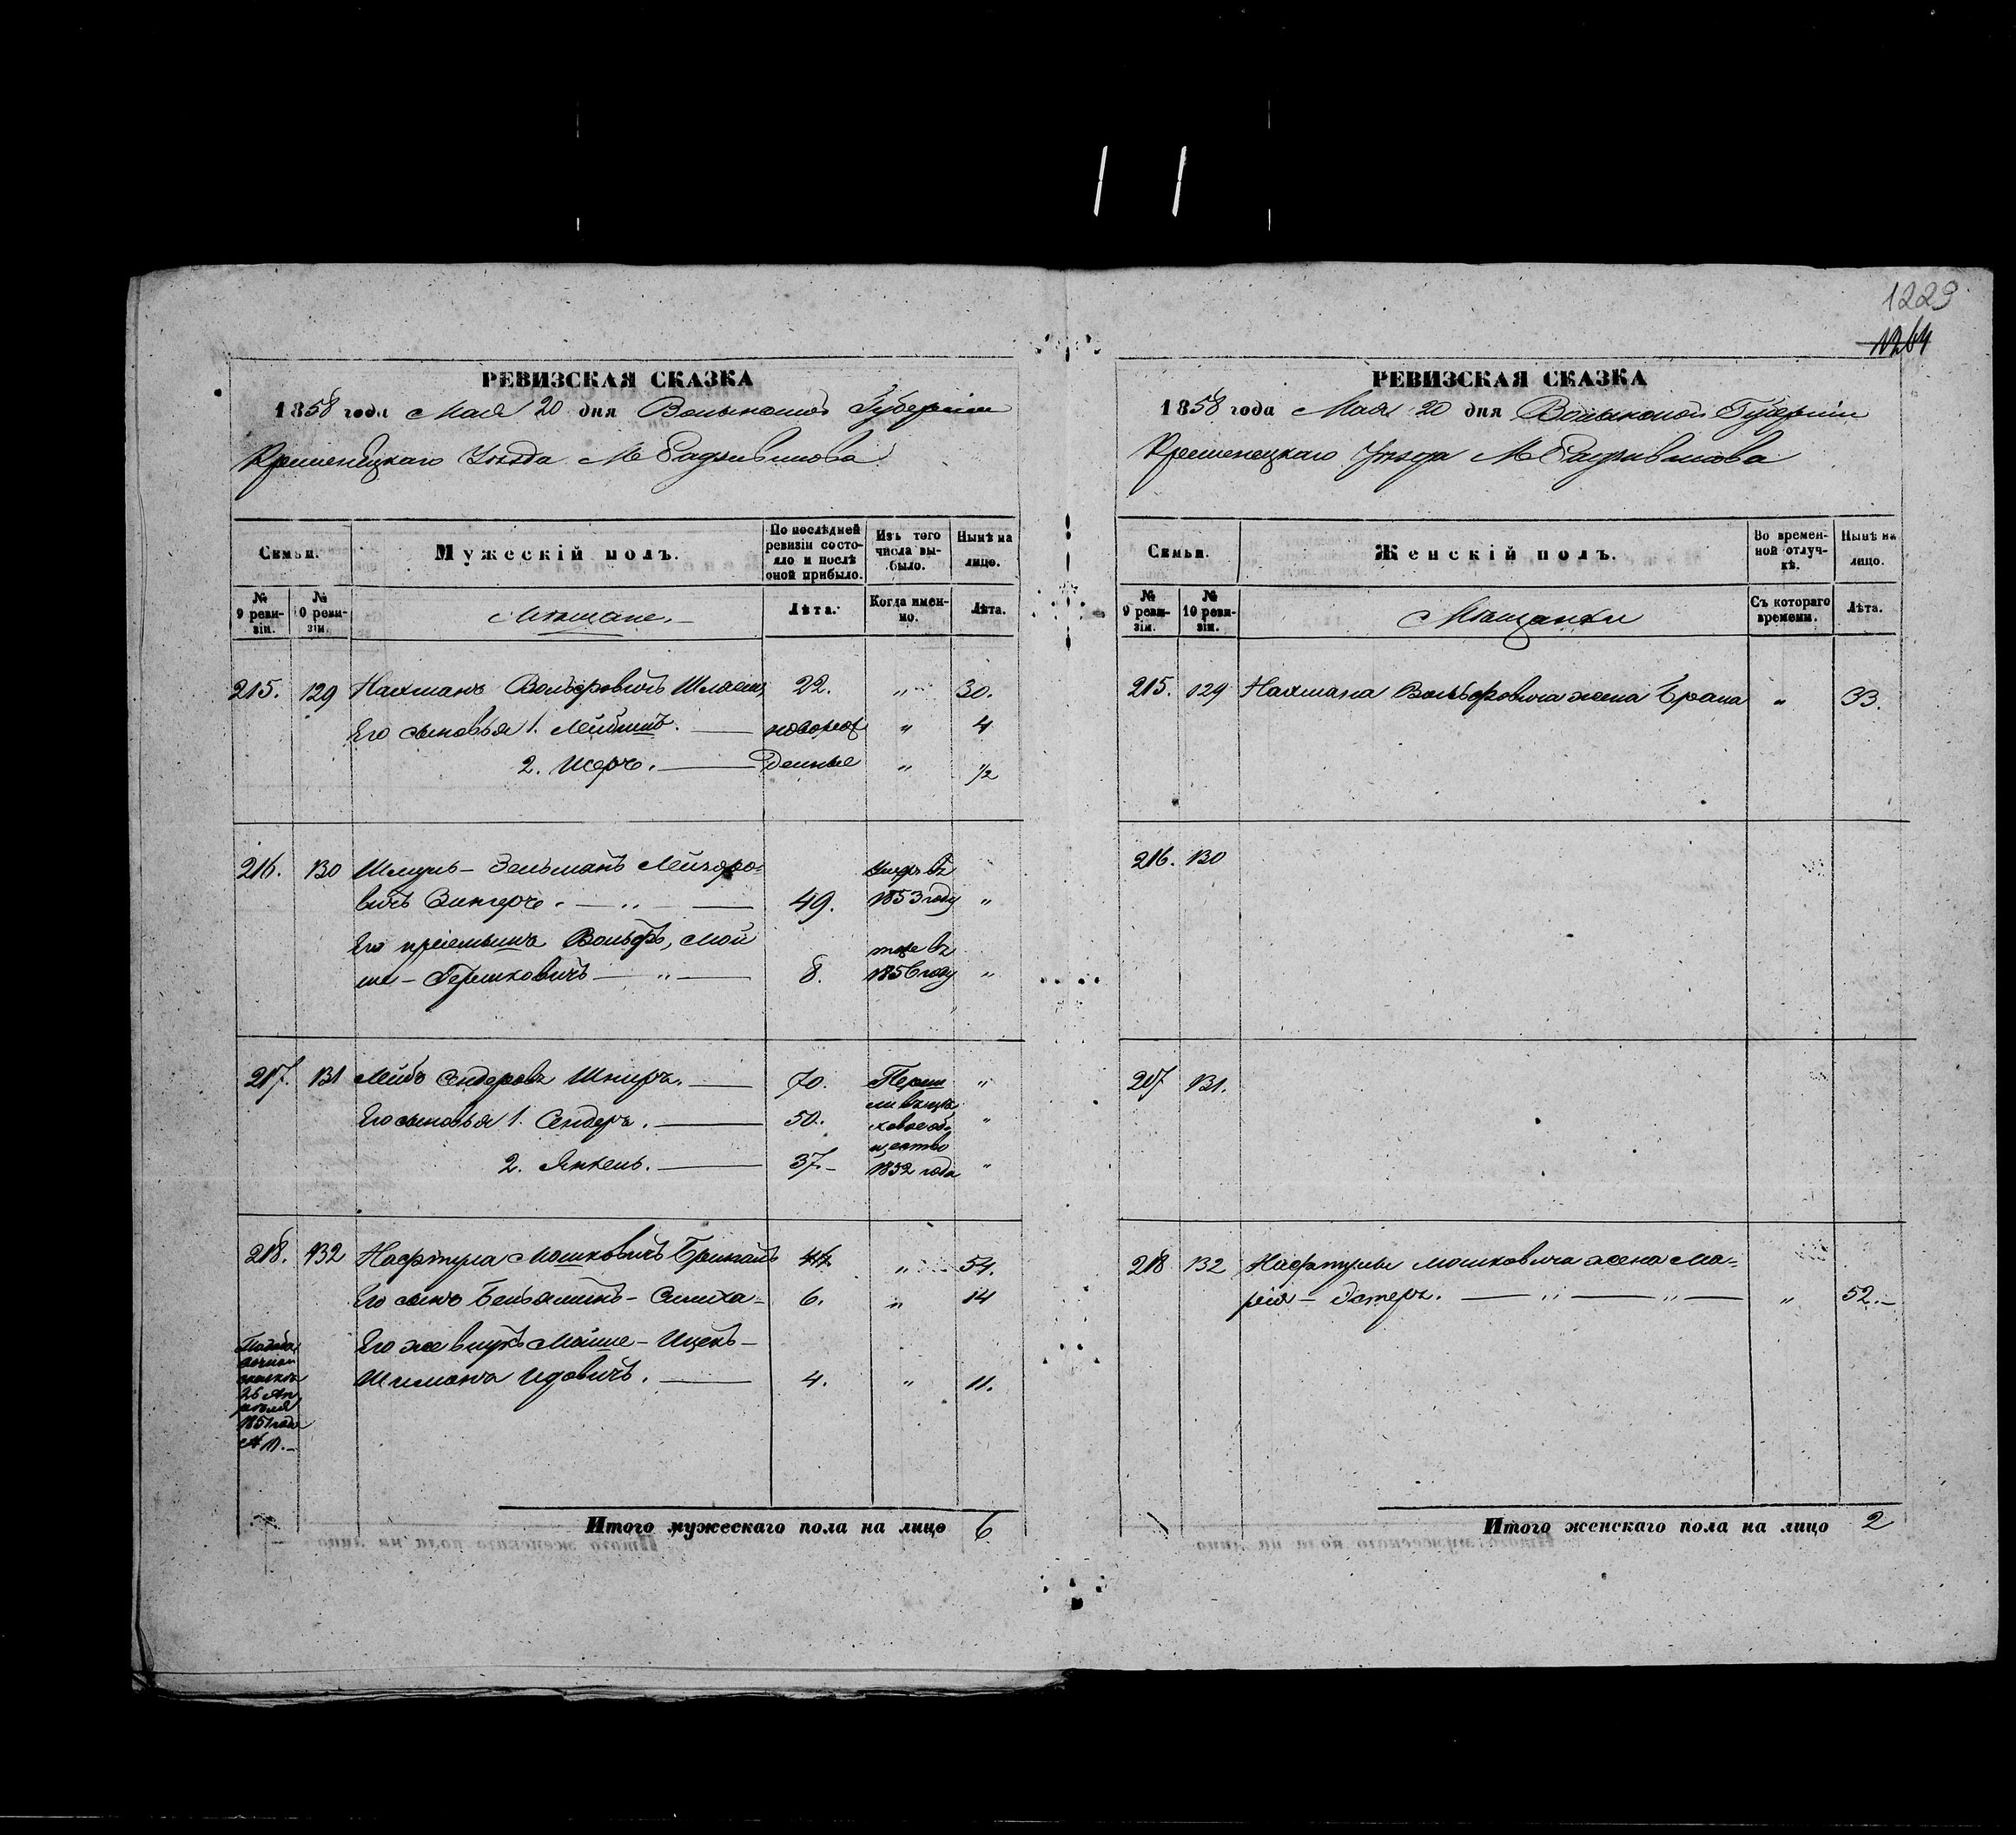 1229
1264
РЕВИЗСКАЯ СКАЗКА
1858 года Мая 20 дня Волынской Губерніи
Кременецкаго Уѣзда М Радзивилова
Семьи.
Мужескій полъ.
По послѣдней ревизіи состояло и послѣ оной прибыло.
Изъ того числа выбыло.
Нынѣ на лицо.
№ 9 ревизіи.
№ 10 ревизіи.
Мѣщане.
Лѣта.
Когда именно.
Лѣта.
215. 129 Нахманъ Вольфовичъ 22. " 30.
Его сыновья 1. Лейбишъ. — новорож " 4
2. Шеръ. — денные " ½
216. 130 Шмуль - Зельманъ Лейзоро=
вичъ Зингеръ. — " — 49. умеръ въ 1853 году "
Его пріемышъ Вольфъ, Мой
ше - Гершковичъ — " — 8. тоже въ 1856 году "
217. 131 Лейбъ Сендеровъ Шниръ. — 70. "
Его сыновья 1. Сендеръ. — 50. "
2. Янкель. — 37. — "
Переш
ли въ цѣ
ховое об
щество
1852 года
218. 132 Нафтула Мошковичъ 44. " 54.
Его сынъ Беньяминъ - Симха - 6. " 14
Его же внукъ Мойше - Ицекъ -
Шимонъ Идовичъ. — 4. " 11.
26 Ап
рѣля
1851 года
Итого мужескаго пола на лицо 6.
РЕВИЗСКАЯ СКАЗКА
1858 года Мая 20 дня Волынской Губерніи
Кременецкаго Уѣзда М Радзивилова
Семьи.
Женскій полъ.
Во временной отлучкѣ.
Нынѣ на лицо.
№ 9 ревизіи.
№ 10 ревизіи.
Мѣщанки
Съ котораго времени.
Лѣта.
215. 129 Нахмана Вольфовича жена " 33.
216. 130
217 131.
218 132 Нафтулы Мошковича жена Ма=
рія - Эстеръ. — " — " — " 52. —
Итого женскаго пола на лицо 2